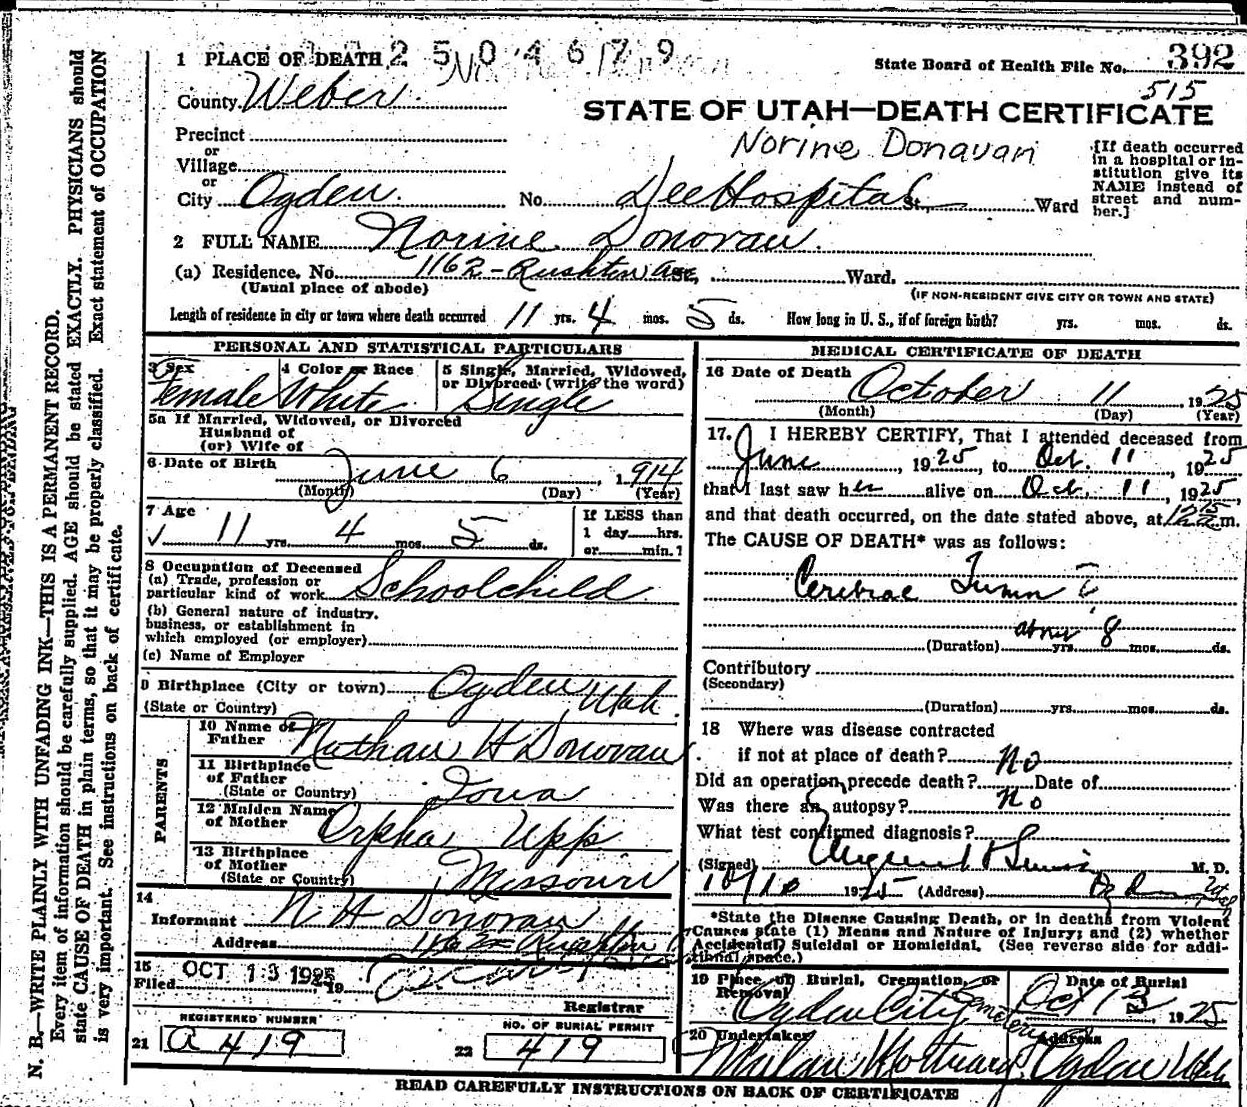 2 5 0 4 6 7 9
1 PLACE OF DEATH
State Board of Health File No. 392
515
County Weber
STATE OF UTAH—DEATH CERTIFICATE
Norine Donavan
Precinct
or
Village
or
City Ogden No. Dee Hospital St., Ward
[If death occurred in a hospital or institution give its NAME instead of street and number.]
2 FULL NAME Norine Donovan
(a) Residence. No. 1162 - Rushton Ave St., Ward.
(Usual place of abode) (IF NON-RESIDENT GIVE CITY OR TOWN AND STATE)
Length of residence in city or town where death occurred 11 yrs. 4 mos. 5 ds. How long in U. S., if of foreign birth? yrs. mos. ds.
PERSONAL AND STATISTICAL PARTICULARS
3 Sex Female
4 Color or Race White
5 Single, Married, Widowed, or Divorced (write the word) Single
5a If Married, Widowed, or Divorced
Husband of
(or) Wife of
6 Date of Birth June 6 1914
(Month) (Day) (Year)
7 Age 11 yrs. 4 mos. 5 ds.
If LESS than
1 day hrs.
or min.?
8 Occupation of Deceased
(a) Trade, profession or
particular kind of work Schoolchild
(b) General nature of industry.
business, or establishment in
which employed (or employer)
(c) Name of Employer
9 Birthplace (City or town) Ogden Utah
(State or Country)
PARENTS
10 Name of Father Nathan H Donovan
11 Birthplace of Father Iowa
(State or Country)
12 Maiden Name of Mother Orpha Upp
13 Birthplace of Mother Missouri
(State or Country)
14
Informant N H Donovan
Address 1162 Rushton
15 OCT 13 1925
Filed 19
Registrar
REGISTERED NUMBER
21 A 419
NO. OF BURIAL PERMIT
22 419
MEDICAL CERTIFICATE OF DEATH
16 Date of Death October 11 1925
(Month) (Day) (Year)
17. I HEREBY CERTIFY, That I attended deceased from
June, 1925, to Oct. 11, 1925
that I last saw her alive on Oct. 11, 1925,
and that death occurred, on the date stated above, at 12 15 a.m.
The CAUSE OF DEATH* was as follows:
Cerebral Tumor
(Duration) yrs. 8 mos. ds.
Contributory
(Secondary)
(Duration) yrs. mos. ds.
18 Where was disease contracted
if not at place of death?
Did an operation precede death? No Date of
Was there an autopsy? No
What test confirmed diagnosis?
(Signed) M. D.
10/10 1925 (Address) Ogden Utah
*State the Disease Causing Death, or in deaths from Violent
Causes state (1) Means and Nature of Injury; and (2) whether
Accidental, Suicidal or Homicidal. (See reverse side for additional space.)
19 Place of Burial, Cremation, or Removal Ogden City Cemetery
Date of Burial Oct 13 1925
20 Undertaker Mortuary
Address Ogden Utah
READ CAREFULLY INSTRUCTIONS ON BACK OF CERTIFICATE
N. B.—WRITE PLAINLY WITH UNFADING INK—THIS IS A PERMANENT RECORD.
Every item of information should be carefully supplied. AGE should be stated EXACTLY. PHYSICIANS should
state CAUSE OF DEATH in plain terms, so that it may be properly classified. Exact statement of OCCUPATION
is very important. See instructions on back of certificate.